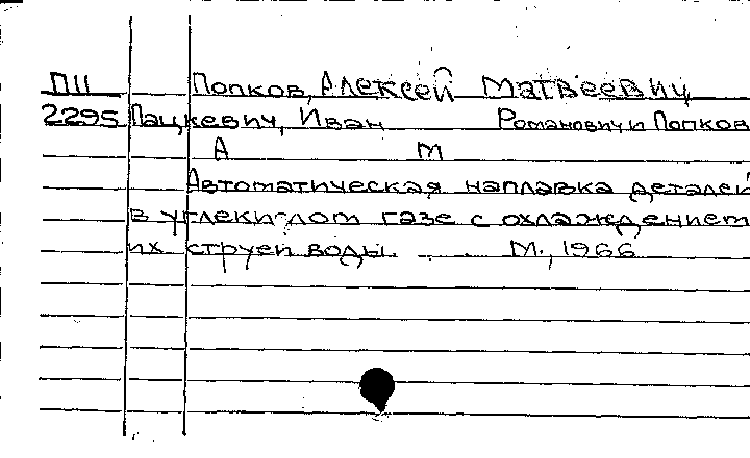 П11 Попков, Алексей Матвеевич
2295 Пацкевич, Иван Романович и Попков
А М
Автоматическая наплавка деталей
в углекислом газе с охлаждением
их струей воды. М., 1966